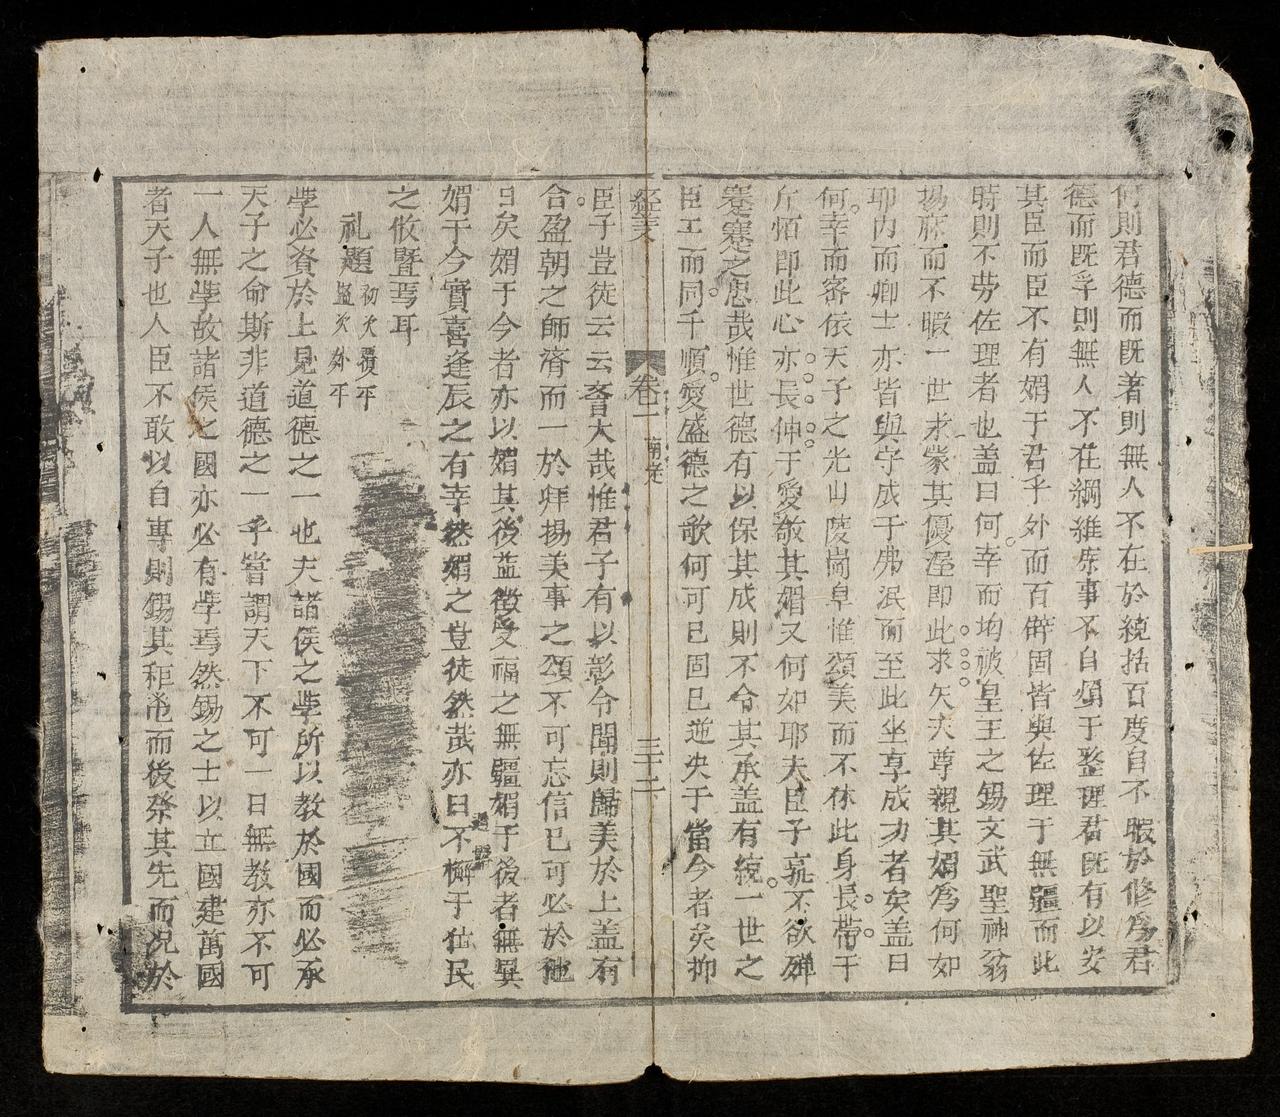 何則君德而既著則無人不在於統括百度自不暇於修為君
德而既孚則無人不在綱維庶事不自煩于整理君既有以安
其臣而臣不有媚于君乎外而百辟固皆與佐理于無疆而此
時則不劳佐理者也盖曰何幸而均被皇王之錫文武聖神翁
揚庥而不暇一世求蒙其優渥即此求矢夫尊親其媚為何如
耶内而卿士亦皆與守成于弗泯而至此坐享成功者矣盖曰
何幸而審依天子之光山陵崗阜惟頌美而不休此身長帶于
斤栢即此心亦長伸于愛敬其媚又何如耶夫臣子孰不欲殫
蹇蹇之思哉惟世德有以保其成則不令其承盖有統一世之
臣工而同千順愛盛德之歌何可已固已逆决于當今者矣抑
经義 卷一 南定 三十二
臣子豈徒云云大哉惟君子有以彰令聞則歸美於上盖有
合盈朝之師濟而一於拜揚美事之頌不可忘信已可必於他
日矣媚于今者亦以媚其後益徵受福之無疆媚于後者無異
媚于今實喜逢辰之有幸然媚之豈徒然哉亦曰不懈于位民
之攸曁焉耳
礼題 初次覆平 監次外平
學必資於上見道德之一也夫諸侯之學所以教於國而必承
天子之命斯非道德之一乎嘗謂天下不可一日無教亦不可
一人無學故諸侯之國亦必有學焉然錫之士以立國建萬國
者天子也人臣不敢以自專則錫其秬鬯而後祭其先而况於